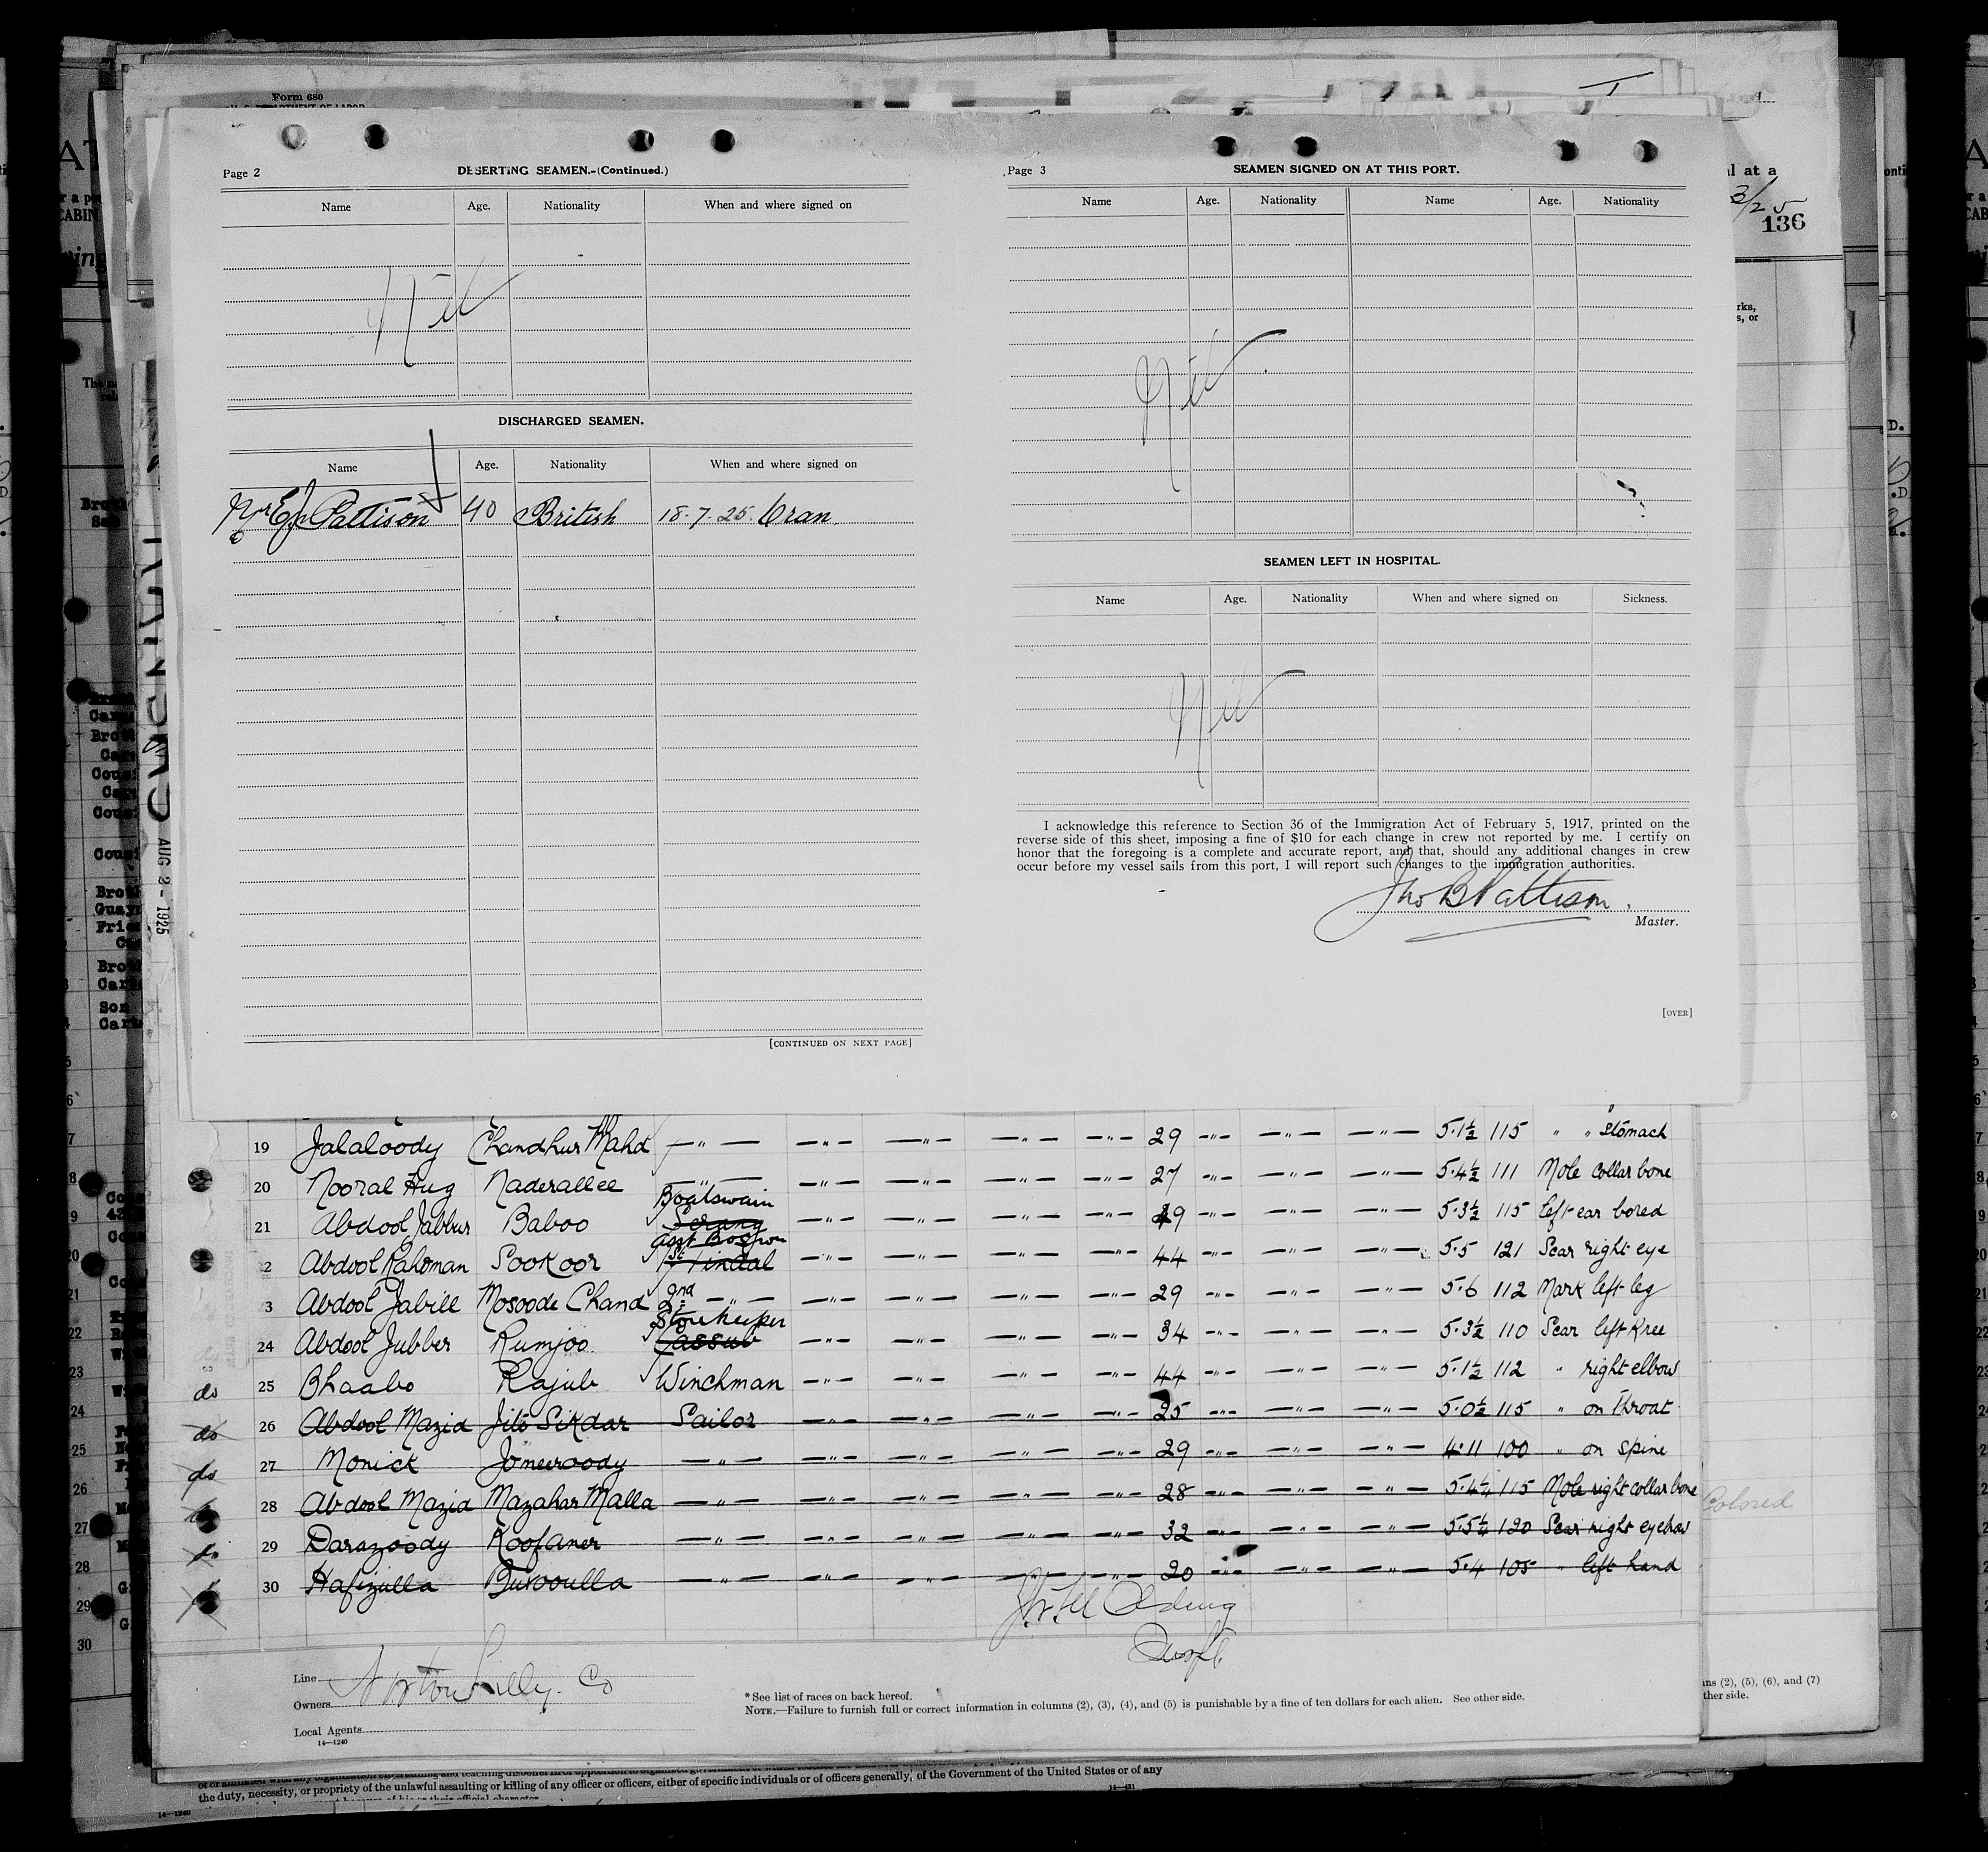 Form 680
Page 2
DESERTING SEAMEN.-(Continued.)
Name Age. Nationality When and where signed on
Nil
DISCHARGED SEAMEN.
Name Age. Nationality When and where signed on
Mr E J Pattison 40 British 18.7.25. Oran
[CONTINUED ON NEXT PAGE]
Page 3
SEAMEN SIGNED ON AT THIS PORT.
Name Age. Nationality Name Age. Nationality
Nil
SEAMEN LEFT IN HOSPITAL.
Name Age. Nationality When and where signed on Sickness.
Nil
I acknowledge this reference to Section 36 of the Immigration Act of February 5, 1917, printed on the
reverse side of this sheet, imposing a fine of $10 for each change in crew not reported by me. I certify on
honor that the foregoing is a complete and accurate report, and that, should any additional changes in crew
occur before my vessel sails from this port, I will report such changes to the immigration authorities.
Jno B Pattison.
Master.
[OVER]
136
AUG 2 - 1925
19 Jalaloody Chandhur Mahd —"— —"— —"— —"— —"— 29 —"— —"— —"— 5.1½ 115 " " Stomach
20 Nooral Hug Naderallee —"— —"— —"— —"— —"— 27 —"— —"— —"— 5.4½ 111 Mole collar bone
Boatswain
21 Abdool Jabbur Baboo Serang —"— —"— —"— —"— 39 —"— —"— —"— 5.3½ 115 left ear bored
asst Bosswn
2 Abdool Rahoman Sookoor 1st Tindal —"— —"— —"— —"— 44 —"— —"— —"— 5.5 121 Scar right eye
3 Abdool Jabill Mosoode Chand 2nd —"— —"— —"— —"— —"— 29 —"— —"— —"— 5.6 112 Mark left leg
Storekeeper
24 Abdool Jubber Rumjoo Cassub —"— —"— —"— —"— 34 —"— —"— —"— 5.3½ 110 Scar left Knee
do 25 Bhaabo Rajub Winchman —"— —"— —"— —"— 44 —"— —"— —"— 5.1½ 112 " right elbow
do 26 Abdool Mazid Jito Sikdar Sailor —"— —"— —"— —"— 25 —"— —"— —"— 5.0½ 115 " on throat
do 27 Monick Jomeeroody —"— —"— —"— —"— —"— 29 —"— —"— —"— 4.11 100 " on spine
28 Abdool Mazid Mazahar Malla —"— —"— —"— —"— —"— 28 —"— —"— —"— 5.4¼ 115 Mole right collar bone
29 Darazoody Koofaner —"— —"— —"— —"— —"— 32 —"— —"— —"— 5.5¼ 120 Scar right eyebrow
30 Hafizulla Burooulla —"— —"— —"— —"— —"— 20 —"— —"— —"— 5.4 105 " left hand
Colored
Line Norton Lilly. Co
Owners
Local Agents
14—1240
* See list of races on back hereof.
NOTE.—Failure to furnish full or correct information in columns (2), (3), (4), and (5) is punishable by a fine of ten dollars for each alien. See other side.
the duty, necessity, or propriety of the unlawful assaulting or killing of any officer or officers, either of specific individuals or of officers generally, of the Government of the United States or of any